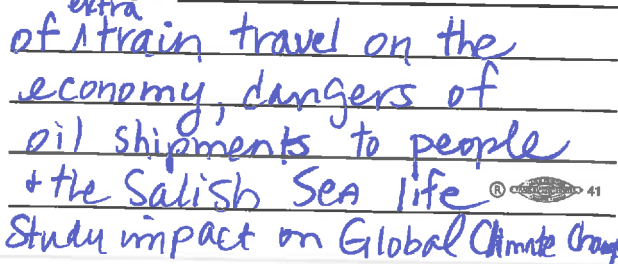 extra
of ^ train travel on the
economy, dangers of
oil shipments to people
+ the Salish Sea life ® 41
Study impact on Global Climate Change